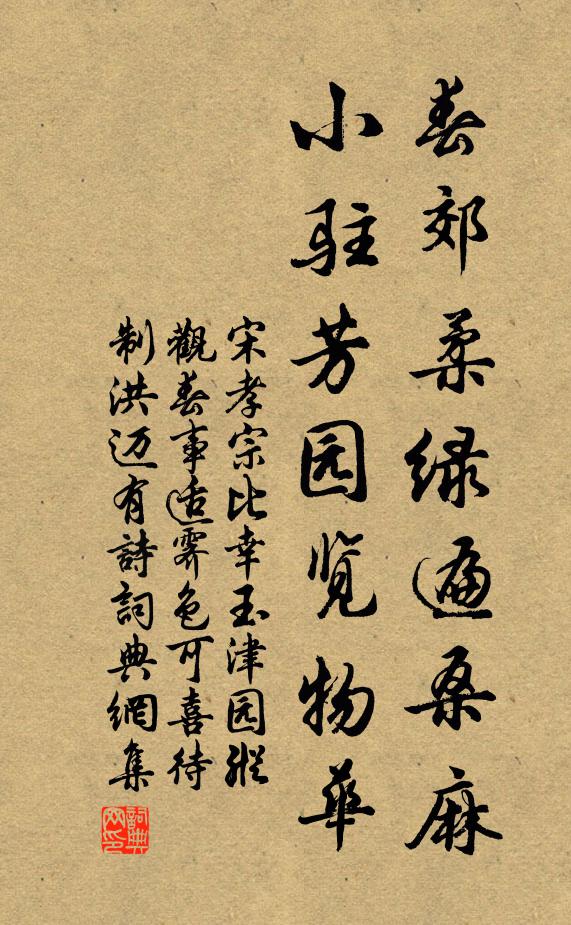 春郊柔绿遍桑麻
小驻芳园览物华
宋孝宗比幸玉津园纵
觀春事适霁色可喜待
制洪迈有詩詞典網集
詞典網印